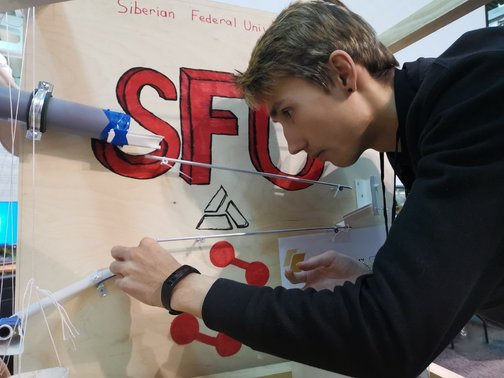 Siberian Federal Univ
SFU